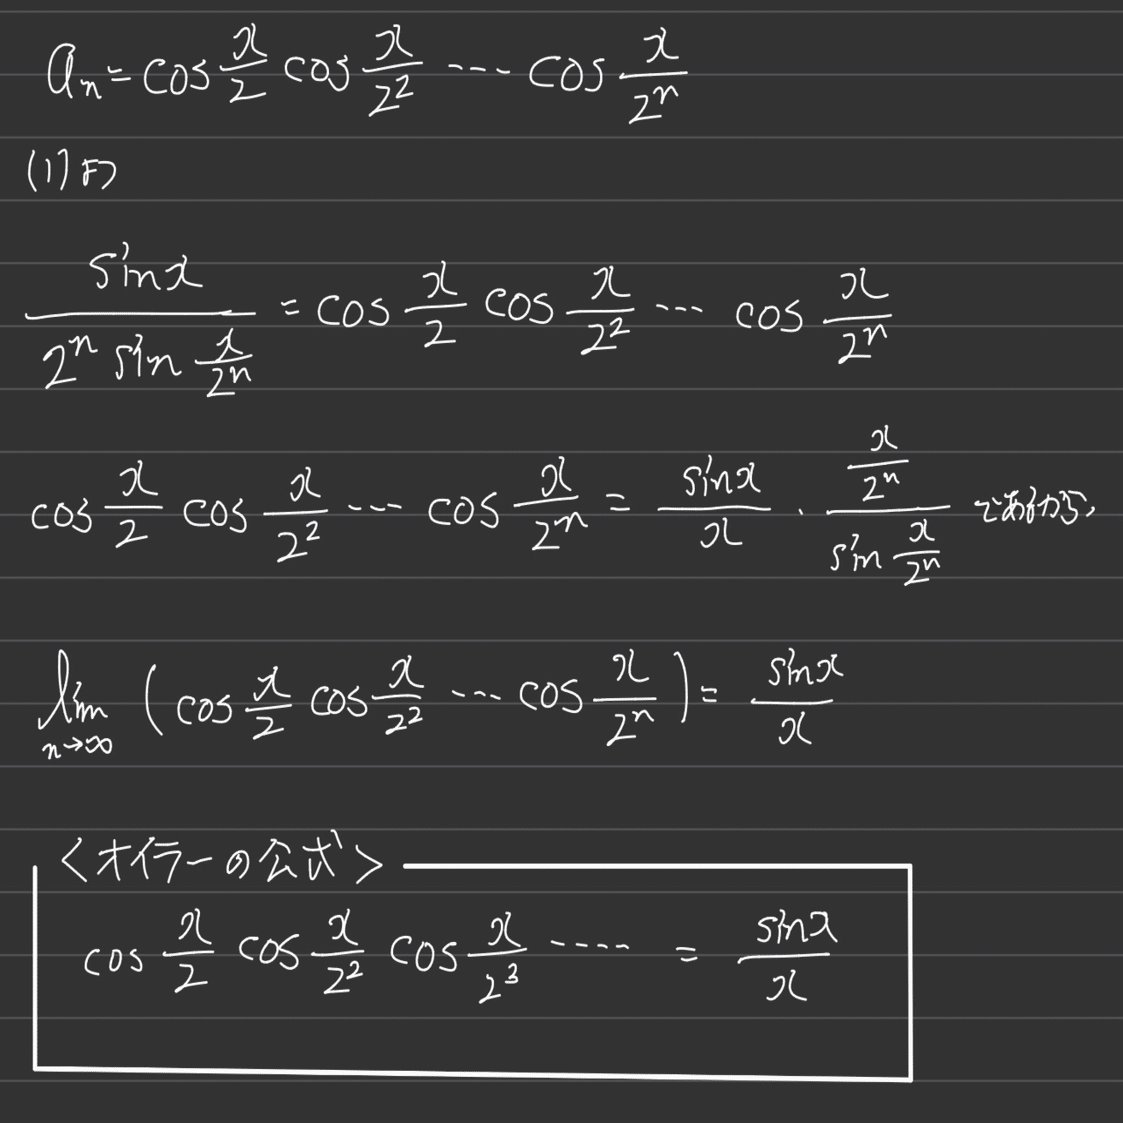 aₙ = cos x/2 cos x/2² ⋯ cos x/2ⁿ
(1)より
sinx / (2ⁿ sin x/2ⁿ) = cos x/2 cos x/2² ⋯ cos x/2ⁿ
cos x/2 cos x/2² ⋯ cos x/2ⁿ = sinx/x · (x/2ⁿ)/(sin x/2ⁿ) であるから,
lim n→∞ (cos x/2 cos x/2² ⋯ cos x/2ⁿ) = sinx/x
<オイラーの公式>
cos x/2 cos x/2² cos x/2³ ⋯⋯ = sinx/x